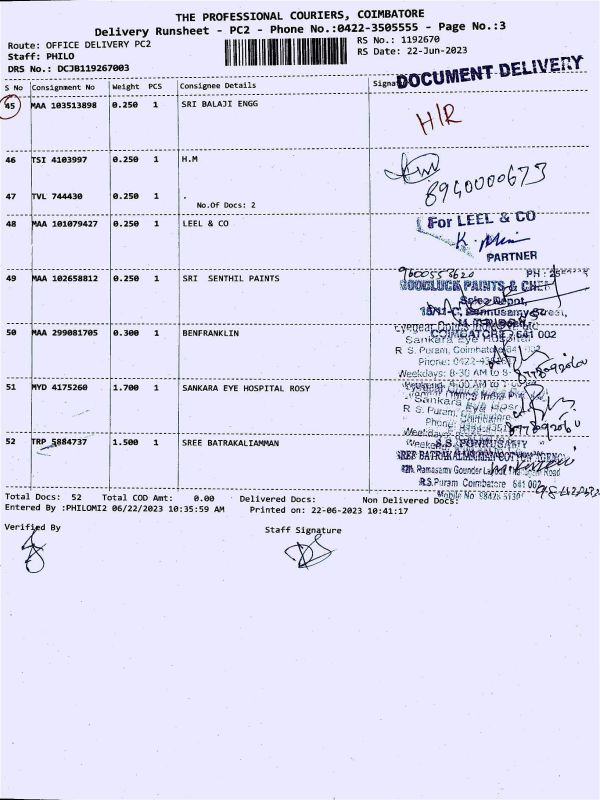 THE PROFESSIONAL COURIERS, COIMBATORE
Delivery Runsheet - PC2 - Phone No.:0422-3505555 - Page No.:3
Route: OFFICE DELIVERY PC2
RS No.: 1192670
Staff: PHILO
RS Date: 22-Jun-2023
DRS No.: DCJB119267003
DOCUMENT DELIVERY
S No Consignment No Weight PCS Consignee Details Signa
45 MAA 103513898 0.250 1 SRI BALAJI ENGG
H/R
46 TSI 4103997 0.250 1 H.M
8940000673
47 TVL 744430 0.250 1 .
No.Of Docs: 2
48 MAA 101079427 0.250 1 LEEL & CO
For LEEL & CO
PARTNER
49 MAA 102658812 0.250 1 SRI SENTHIL PAINTS
9600555620 PH :
GOODLUCK PAINTS & CHE
Sales Depot,
COIMBATORE - 641 002
50 MAA 299081705 0.300 1 BENFRANKLIN
Sankara Eye Hospital
R. S. Puram, Coimbatore
Phone: 0422-
Weekdays: 8-30 AM to 8-
51 MYD 4175260 1.700 1 SANKARA EYE HOSPITAL ROSY
Sankara Eye Hosp
R. S. Puram,
Phone:
52 TRP 5884737 1.500 1 SREE BATRAKALIAMMAN
S.S. PONNUSAMY
SREE BATRAKALIAMMAN COTTON AGENCY
Ramasamy Gounder Layout Road
R.S.Puram Coimbatore 641 002
Mobile No
Total Docs: 52 Total COD Amt: 0.00 Delivered Docs: Non Delivered Docs:
Entered By :PHILOMI2 06/22/2023 10:35:59 AM Printed on: 22-06-2023 10:41:17
Verified By Staff Signature